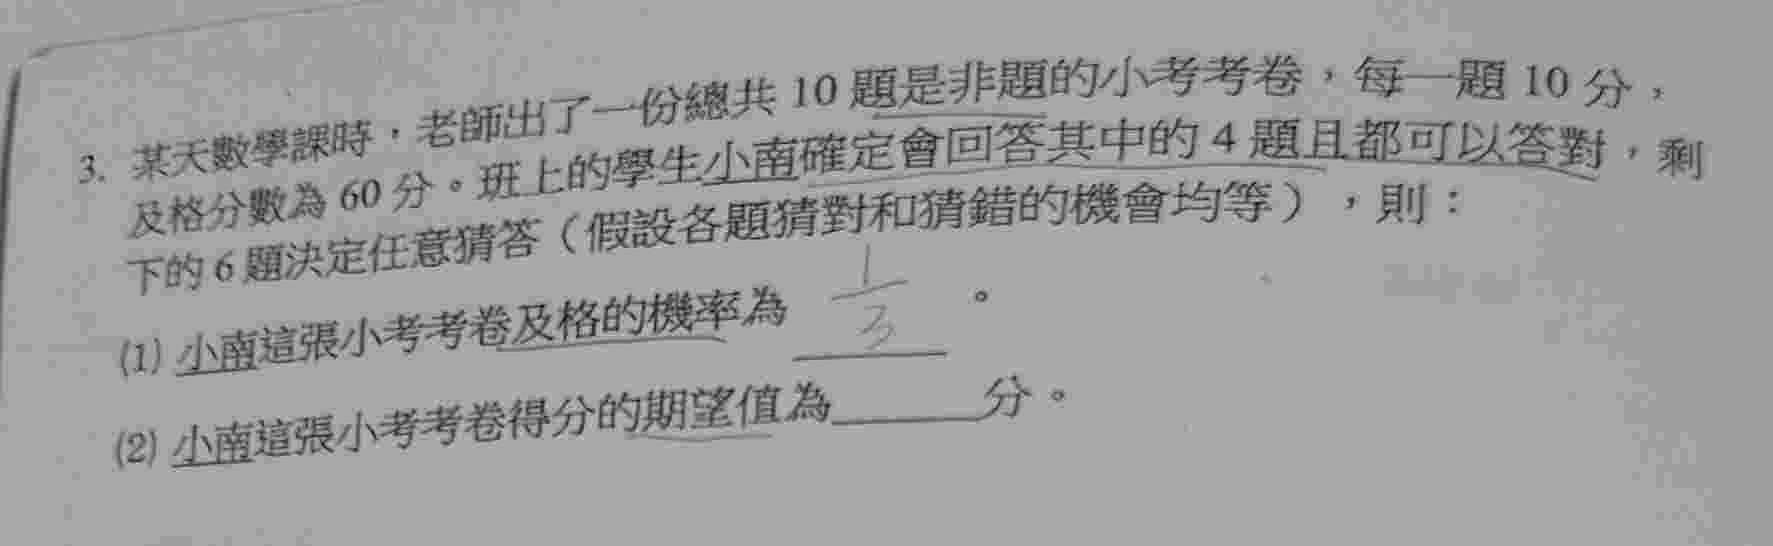 3. 某天數學課時，老師出了一份總共 10 題是非題的小考考卷，每一題 10 分，
及格分數為 60 分。班上的學生小南確定會回答其中的 4 題且都可以答對，剩
下的 6 題決定任意猜答（假設各題猜對和猜錯的機會均等），則：
(1) 小南這張小考考卷及格的機率為 1/3 。
(2) 小南這張小考考卷得分的期望值為______分。